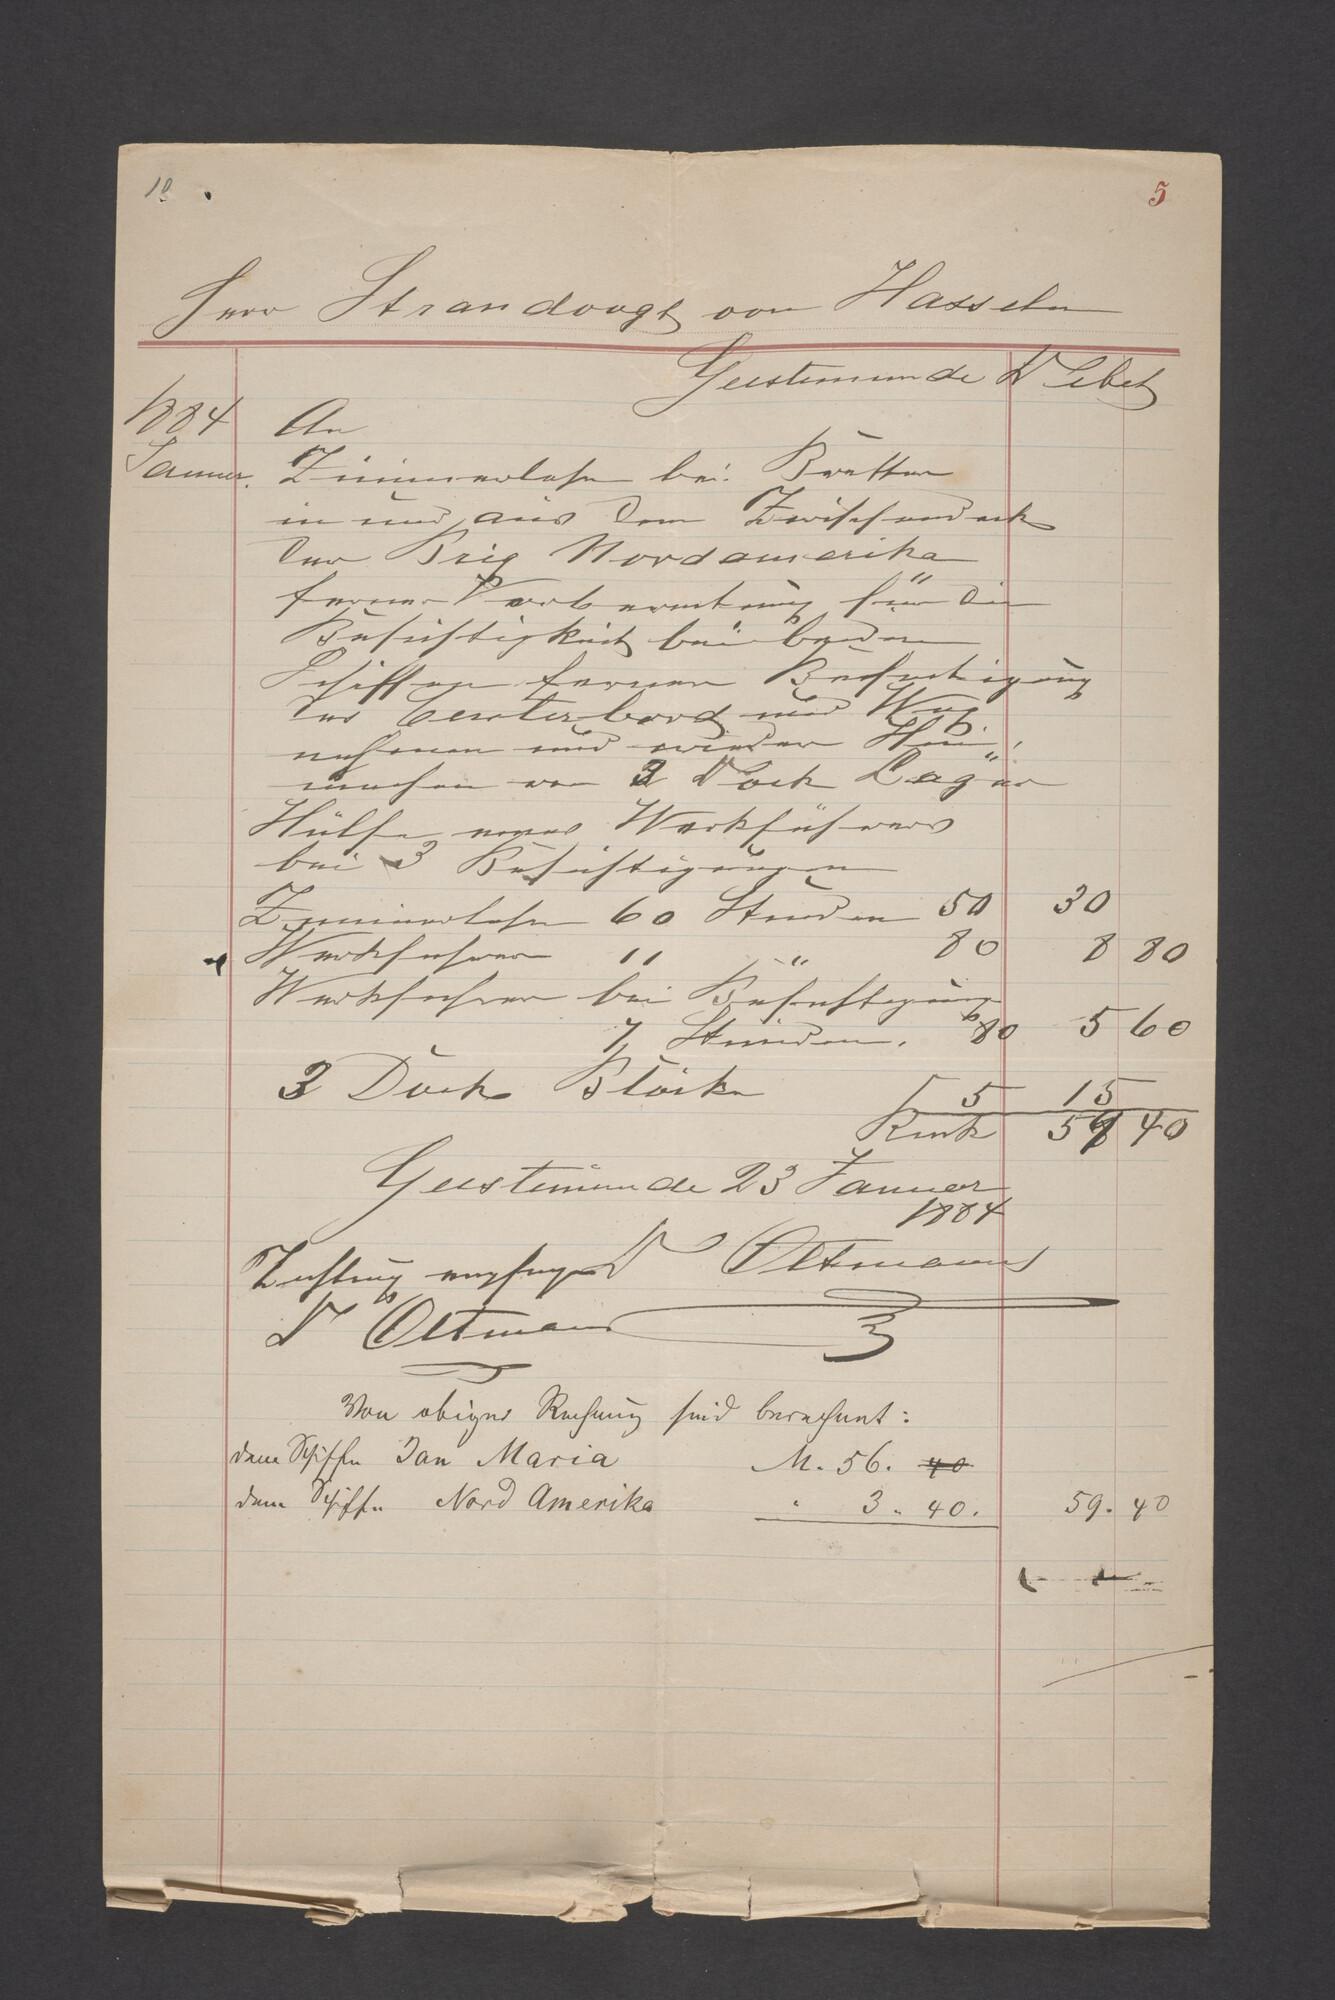 10.
5
Herr Strandvogt von Hasseln
Geestemünde Debet
1884 An
Januar. Zimmerlohn bei Bretter
in und aus dem Zwischendeck
der Brig Nordamerika
ferner Vorbereitung für die
Besichtigkeit bei beiden
Schiffen ferner Befestigung
des Centerbord und Weg
nehmen und wieder Hin
machen von 3 Dock Lager
Hülfe eines Werkführers
bei 3 Besichtigungen
Zimmerlohn 60 Stunden 50 30
Werkführer 11 " 80 8 80
Werkführer bei Besichtigung
7 Stunden. 80 5 60
3 Dock Blöcke 5 15
59 40
Geestemünde 23 Januar
1884
D Oltmanns
Zahlung empfangen
D Oltmanns
Von obiger Rechnung sind berechnet:
dem Schiffe Jan Maria M. 56. 40
dem Schiffe Nord Amerika " 3. 40. 59. 40